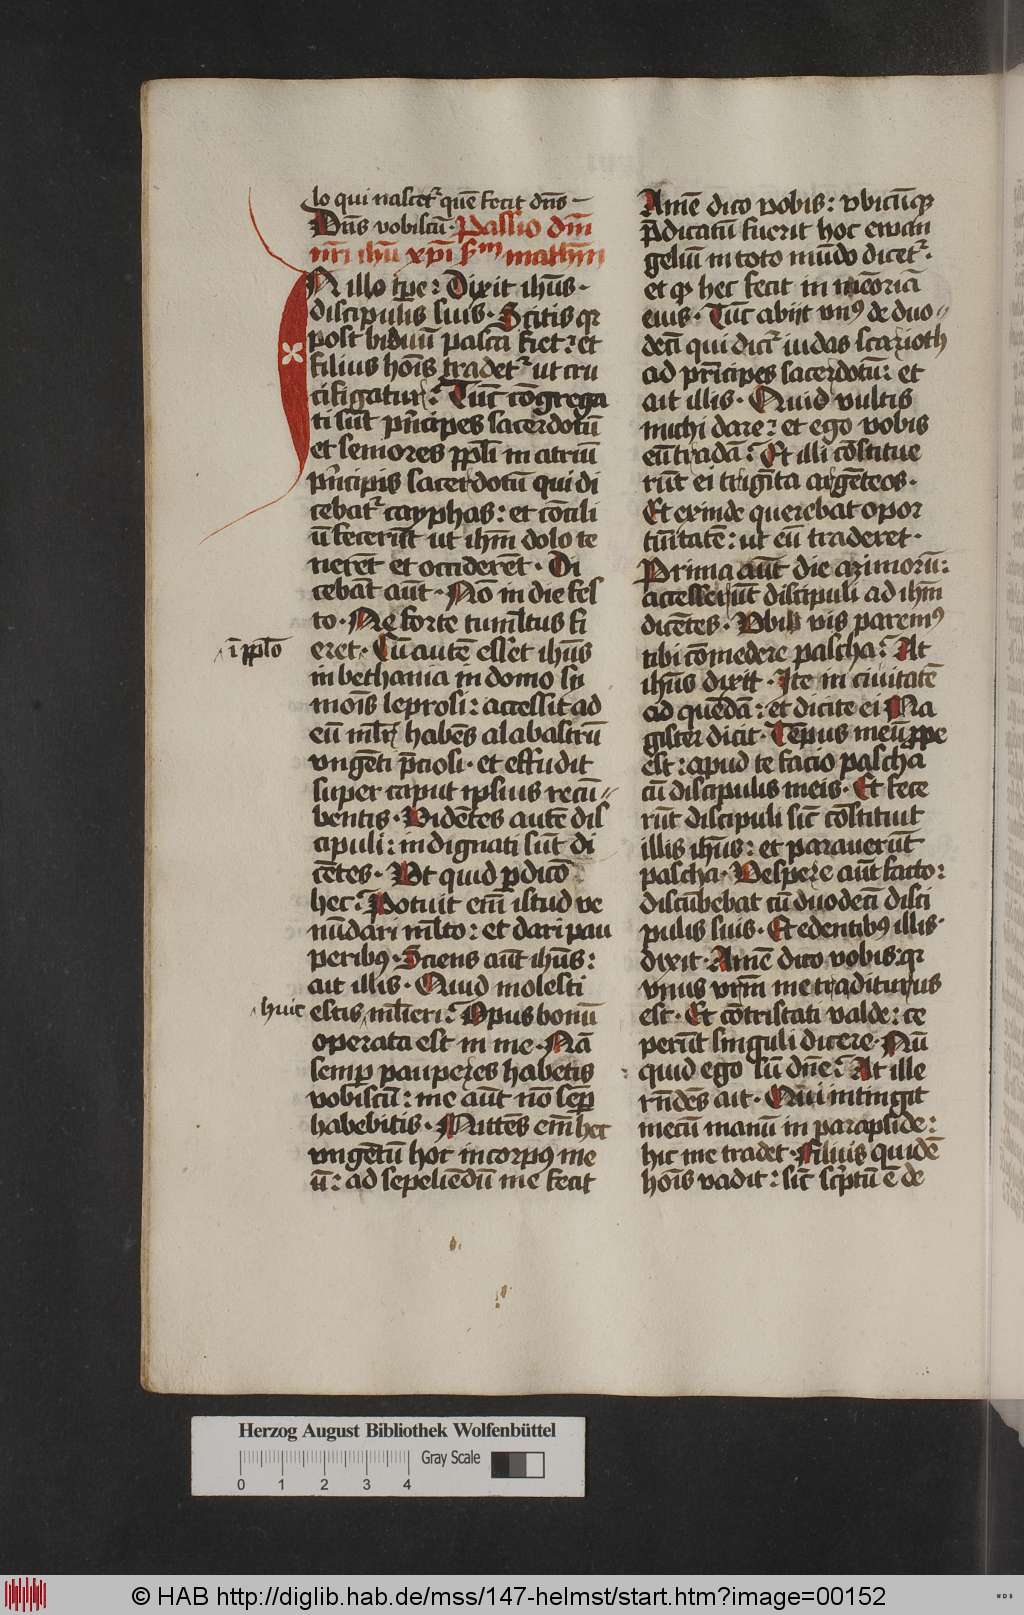 lo qui nascet᷑ quē fecit dn̄s
Dn̄s vobiscū · Passio dn̄i
nr̄i ihū xp̄i s̄m mathm̄
N illo tp̄e : Dixit ihūs ·
discipulis suis · Scitis qꝛ
post biduū pasca fiet : et
filius hoīs tradet᷑ ut cru
cifigatur : Tūc cōgrega
ti sūt pn̄cipes sacerdotū
et seniores pp̄li in atriū
pn̄cipis sacerdotū qui di
cebat᷑ cayphas : et cōcili
ū fecerūt ut ihm̄ dolo te
nerēt et occiderēt · Di
cebāt aūt · Nō in die fes
to · Ne forte tumltus fi
ī pp̄lo
eret · Cū autē esset ihūs
in bethania in domo sy
mōis leprosi : accessit ad
eū ml̄r habēs alabastrū
vngēti p̄ciosi · et effudit
super caput ipsius recū
bentis · Vidētes autē dis
cipuli : indignati sūt di
cētes · Vt quid p̱dico
hec : Potuit em̄ istud ve
nūdari ml̄to : et dari pau
peribꝯ · Sciens aūt ihūs :
ait illis · Quid molesti
huic
estis ml̄ieri : Opus bonū
operata est in me · Nā
semp̱ pauperes habetis
vobiscū : me aūt nō sēp̱
habebitis · Mittēs em̄ hec
vngētū hoc in corpꝯ me
ū : ad sepeliēdū me fecit
Amē dico vobis : vbicūqꝫ
p̄dicatū fuerit hoc ewan
geliū in toto mūdo dicet᷑ ·
et qꝫ hec fecit in mēoriā
eius · Tūc abiit vnꝯ de duo
decī qui dicit᷑ iudas scarioth
ad pn̄cipes sacerdotū : et
ait illis · Quid vultis
michi dare : et ego vobis
eū tradā : Et illi cōstitue
rūt ei trigīta argēteos ·
Et exinde querebat opor
tūitatē : ut eū traderet ·
Prima aūt die azimorū :
accesserūt discipuli ad ihm̄
dicētes · Vbi vis paremꝯ
tibi cōmedere pascha : At
ihūs dixit · Ite in ciuitatē
ad quēdā : et dicite ei Ma
gister dicit · Tēpus meū ꝓpe
est : apud te facio pascha
cū discipulis meis · Et fece
rūt discipuli sic̄ cōstituit
illis ihūs : et parauerūt
pascha · Vespere aūt facto :
discūbebat cū duodecī disci
pulis suis · Et edentibꝯ illis ·
dixit · Amē dico vobis : qꝛ
vnus vrm̄ me traditurus
est · Et cōtristati valde : ce
perūt singuli dicere · Nū
quid ego sū dn̄e : At ille
rn̄dēs ait · Qui intingit
mecū manū in parapside :
hic me tradet · Filius quidē
hoīs vadit : sic̄ sc̄ptū ē de
Herzog August Bibliothek Wolfenbüttel
Gray Scale
0 1 2 3 4
© HAB http://diglib.hab.de/mss/147-helmst/start.htm?image=00152